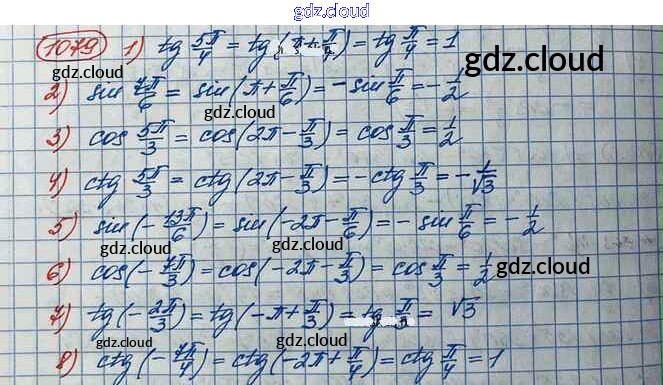 gdz.cloud
1079 1) tg 5π/4 = tg(π+π/4) = tg π/4 = 1
gdz.cloud
gdz.cloud
2) sin 7π/6 = sin(π+π/6) = -sin π/6 = -1/2
gdz.cloud
3) cos 5π/3 = cos(2π-π/3) = cos π/3 = 1/2
gdz.cloud
gdz.cloud
4) ctg 5π/3 = ctg(2π-π/3) = -ctg π/3 = -1/√3
gdz.cloud
5) sin(-13π/6) = sin(-2π-π/6) = -sin π/6 = -1/2
gdz.cloud
gdz.cloud
6) cos(-7π/3) = cos(-2π-π/3) = cos π/3 = 1/2
gdz.cloud
gdz.cloud
7) tg(-2π/3) = tg(-π+π/3) = tg π/3 = √3
gdz.cloud
gdz.cloud
8) ctg(-7π/4) = ctg(-2π+π/4) = ctg π/4 = 1
gdz.cloud